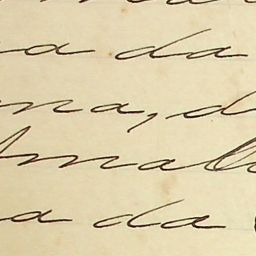 a da
na, d
Amal
a da